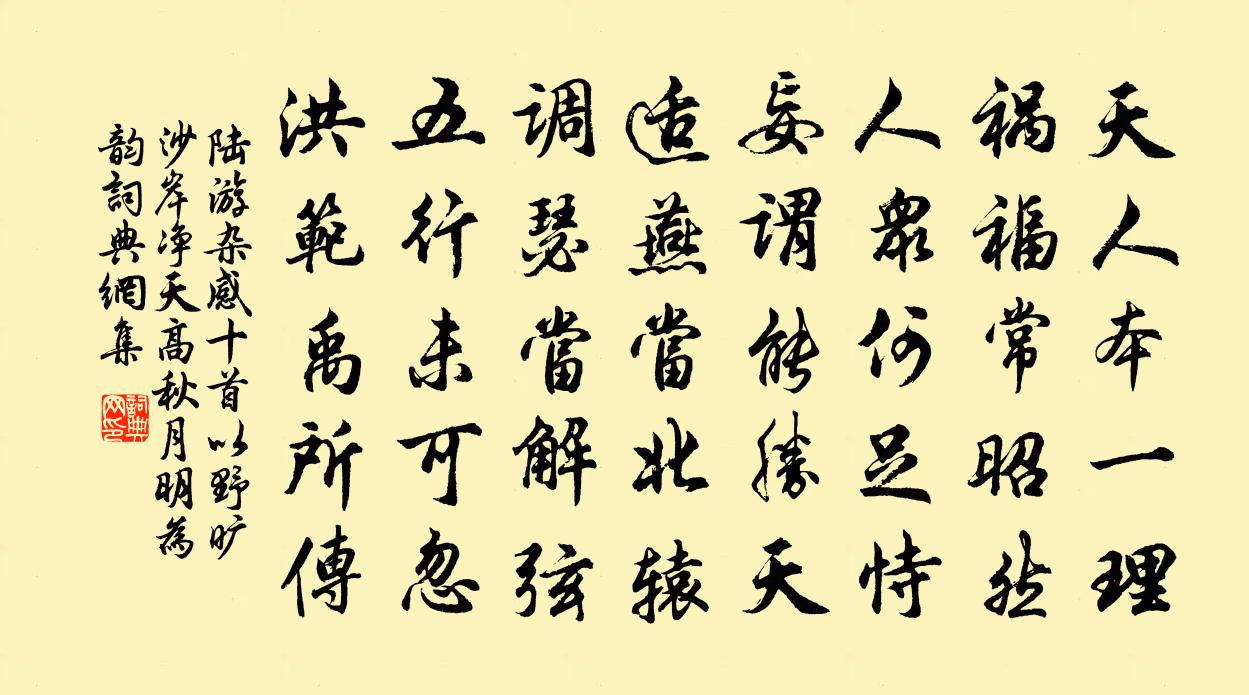 天人本一理
祸福常昭然
人眾何足恃
妄谓能勝天
适燕當北辕
调瑟當解弦
五行未可忽
洪範禹所傳
陆游杂感十首以野旷
沙岸净天高秋月明為
韵詞典網集
詞典
网印